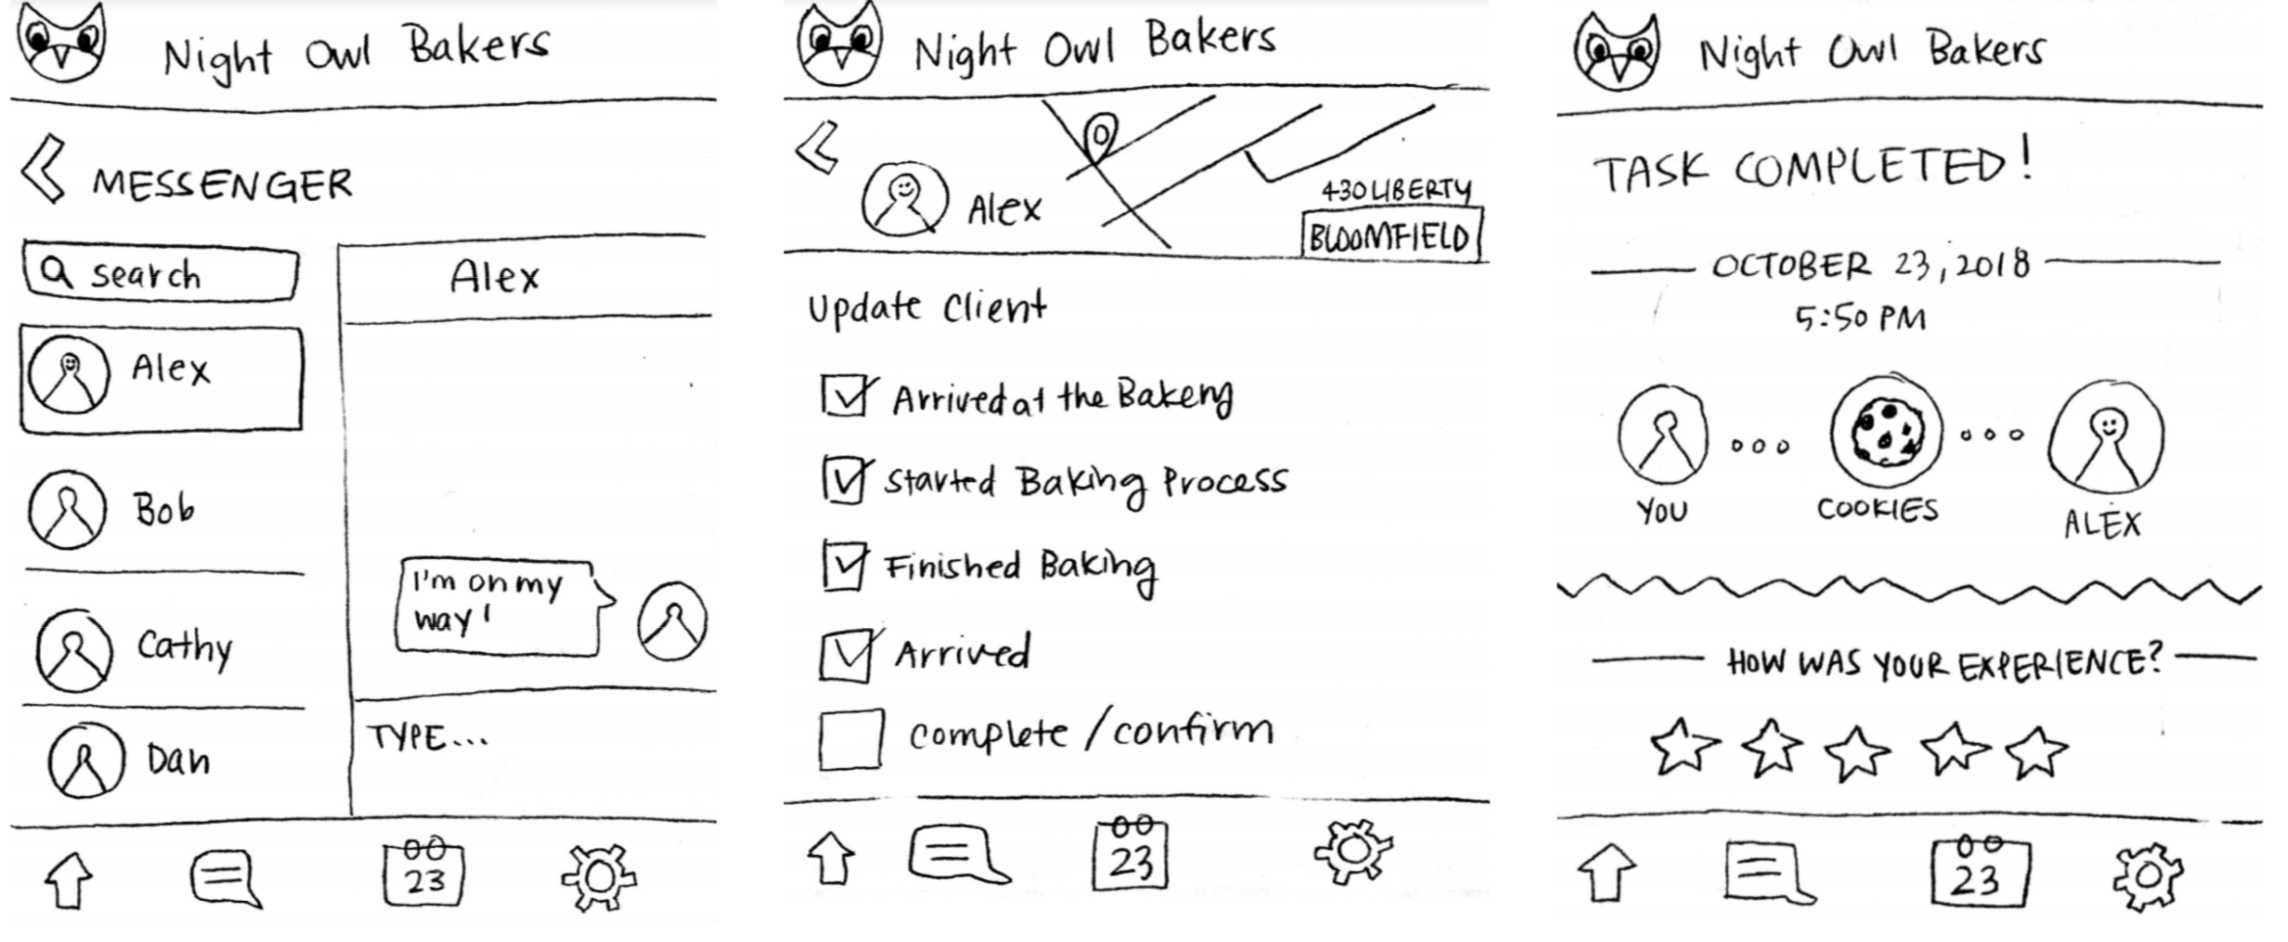 Night Owl Bakers
MESSENGER
search
Alex
Bob
Cathy
Dan
Alex
I'm on my
way!
TYPE...
23
Night Owl Bakers
Alex
430 LIBERTY
BLOOMFIELD
Update Client
Arrived at the Bakery
Started Baking Process
Finished Baking
Arrived
Complete / confirm
23
Night Owl Bakers
TASK COMPLETED!
OCTOBER 23, 2018
5:50 PM
YOU
COOKIES
ALEX
HOW WAS YOUR EXPERIENCE?
23